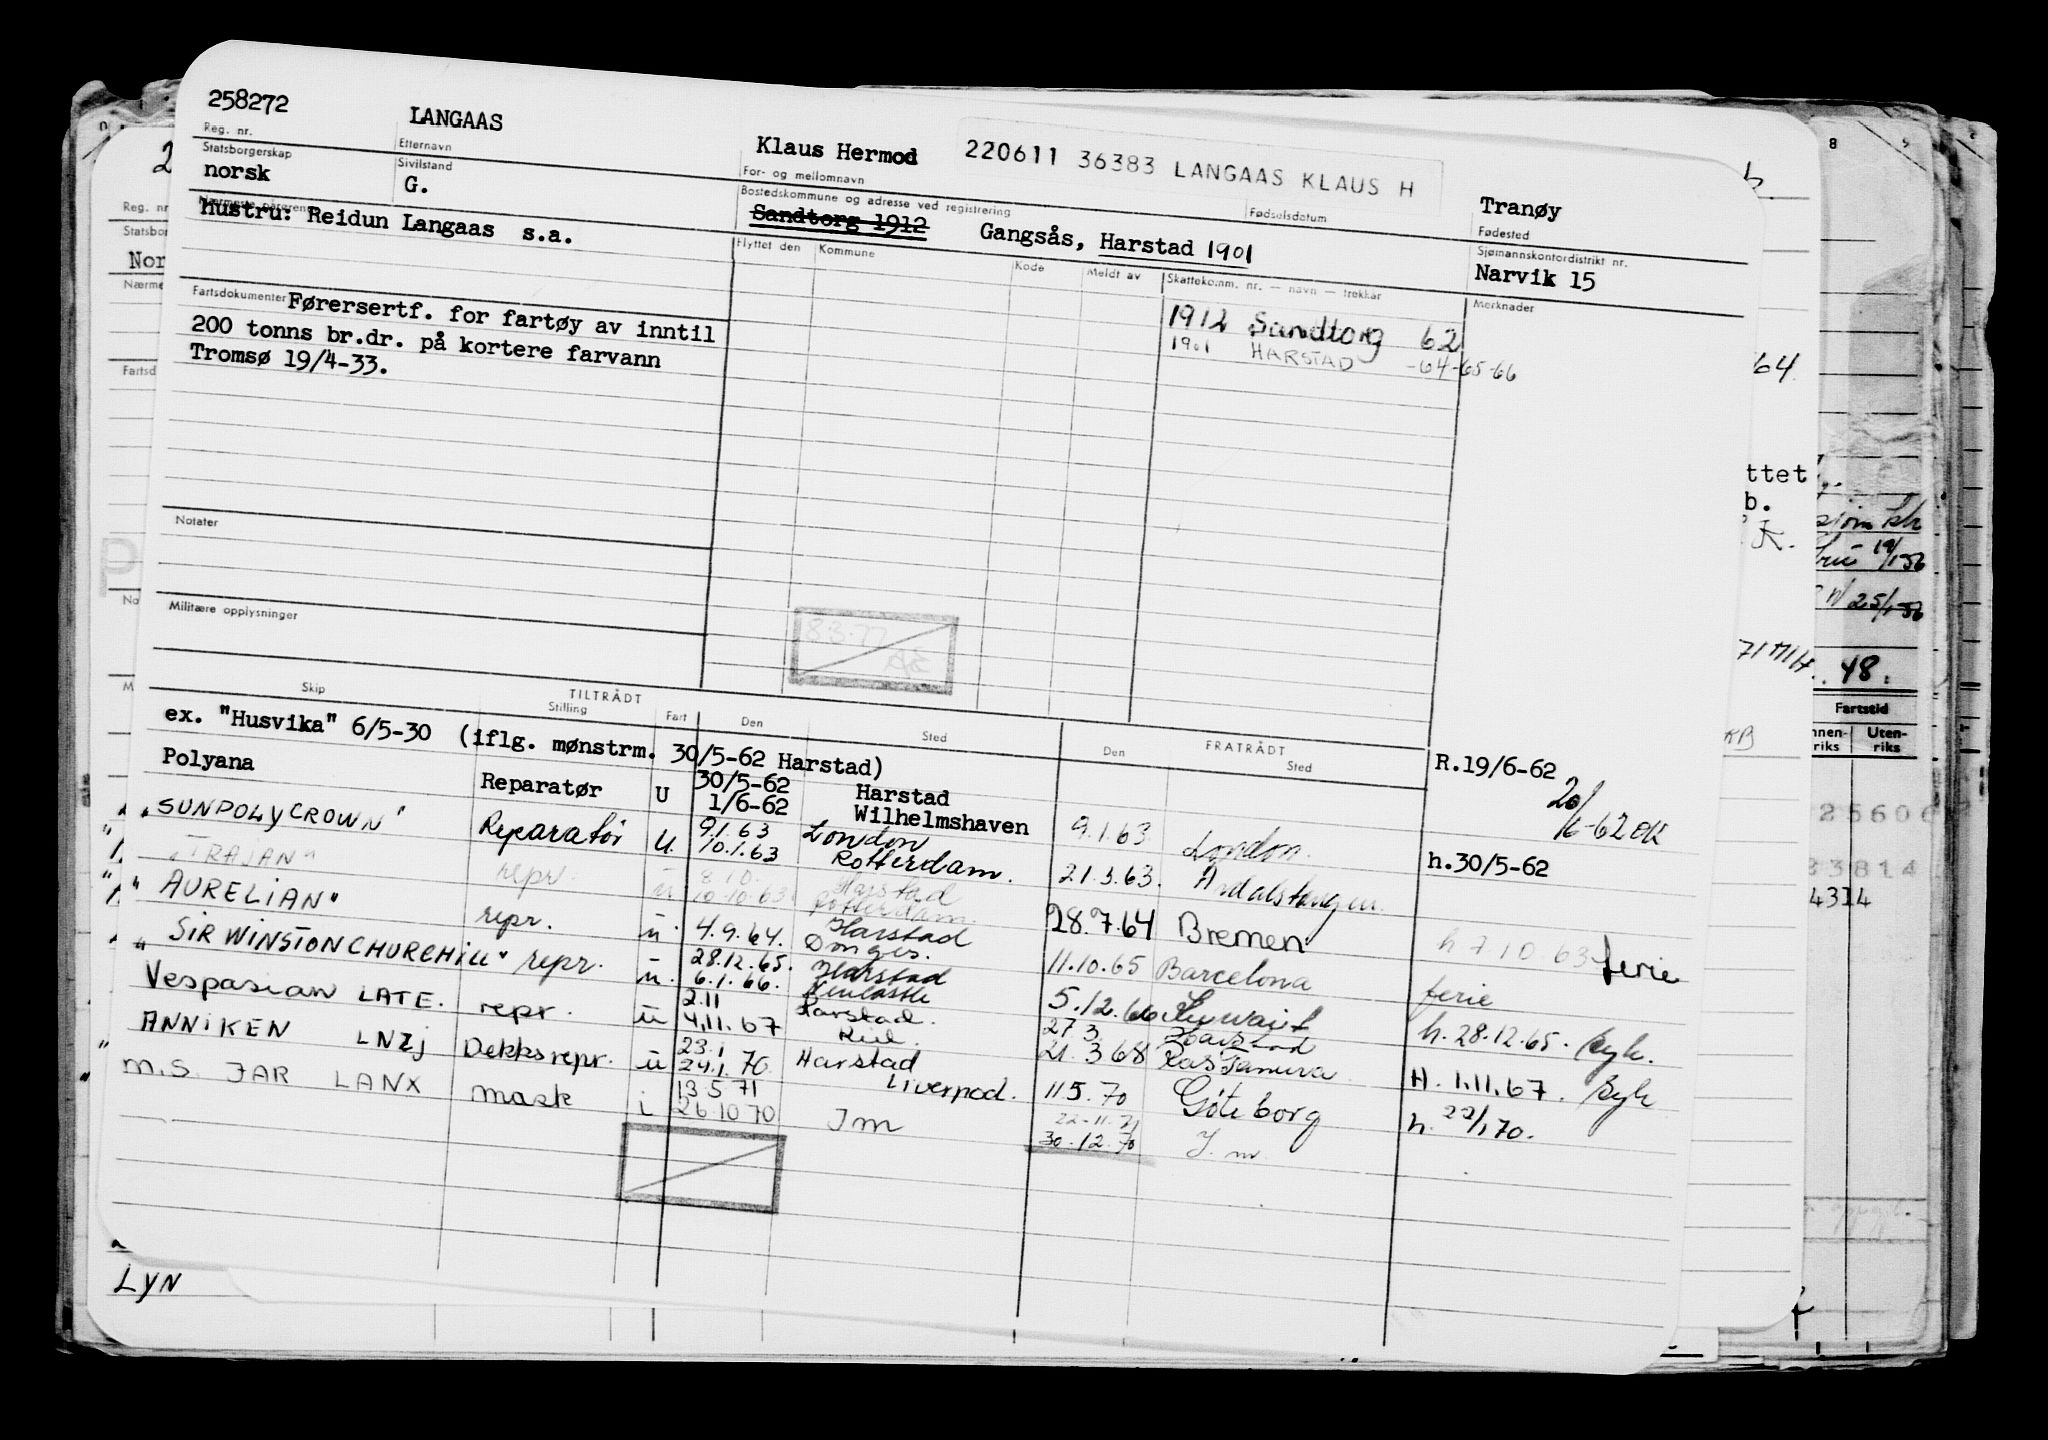 258272 LANGAAS Klaus Hermod 220611 36383 LANGAAS KLAUS H Tranøy
Reg. nr. Etternavn For- og mellomnavn Fødselsdatum Fødested
Statsborgerskap Sivilstand Bostedskommune og adresse ved registrering Sjømannskontordistrikt nr.
norsk G. Sandtorg 1912 Gangsås, Harstad 1901 Narvik 15
Nærmeste pårørende
hustru: Reidun Langaas s.a.
Flyttet den Kommune Kode Meldt av Skattekomm. nr. — navn — trekkår Merknader
Fartsdokumenter Førersertf. for fartøy av inntil
200 tonns br.dr. på kortere farvann
Tromsø 19/4-33.
1912 Sandtorg 62
1901 HARSTAD -64-65-66
Notater
Militære opplysninger
8.3.77
AE
Skip TILTRÅDT FRATRÅDT
Stilling Fart Den Sted Den Sted
ex. "Husvika" 6/5-30 (iflg. mønstrm. 30/5-62 Harstad) R.19/6-62
Polyana Reparatør U 30/5-62 Harstad
1/6-62 Wilhelmshaven 9.1.63 London. h.30/5-62
20/6-62 EK
"SUNPOLYCROWN" Reparatør U. 9.1.63 London
10.1.63 Rotterdam. 21.3.63. Årdalstangen.
"TRAJAN" repr. u 8.10. Harstad
10.10.63 Rotterdam. 28.7.64 Bremen h 7 10 63 ferie
"AURELIAN" repr. u 4.9.64. Harstad
Donges. 11.10.65 Barcelona ferie
"SIR WINSTON CHURCHILL" repr. u. 28.12.65. Harstad
6.1.66. Newcastle 5.12.66 Kuwait h. 28.12.65. syk.
Vespasian LATE. repr. u 2.11 Harstad. 27 3 Harstad
4.11.67 Kiel. 21.3 68 Ras Tanura H. 1.11.67. syk
ANNIKEN LNZJ Dekksrepr. u 23.1 Harstad
24.1.70 Liverpool. 11 5. 70 Göteborg h. 22/1 70.
M.S. JAR LANX mask i 13 5 71
26 10 70 Im 22-11-71
30.12.70 I. m.
LYN
Reg. nr
Nor
Fartstid
Uten-
riks
64
ttet
b.
71 MH
48.
KB
25606
33814
4314
19/1 56
25/1-56